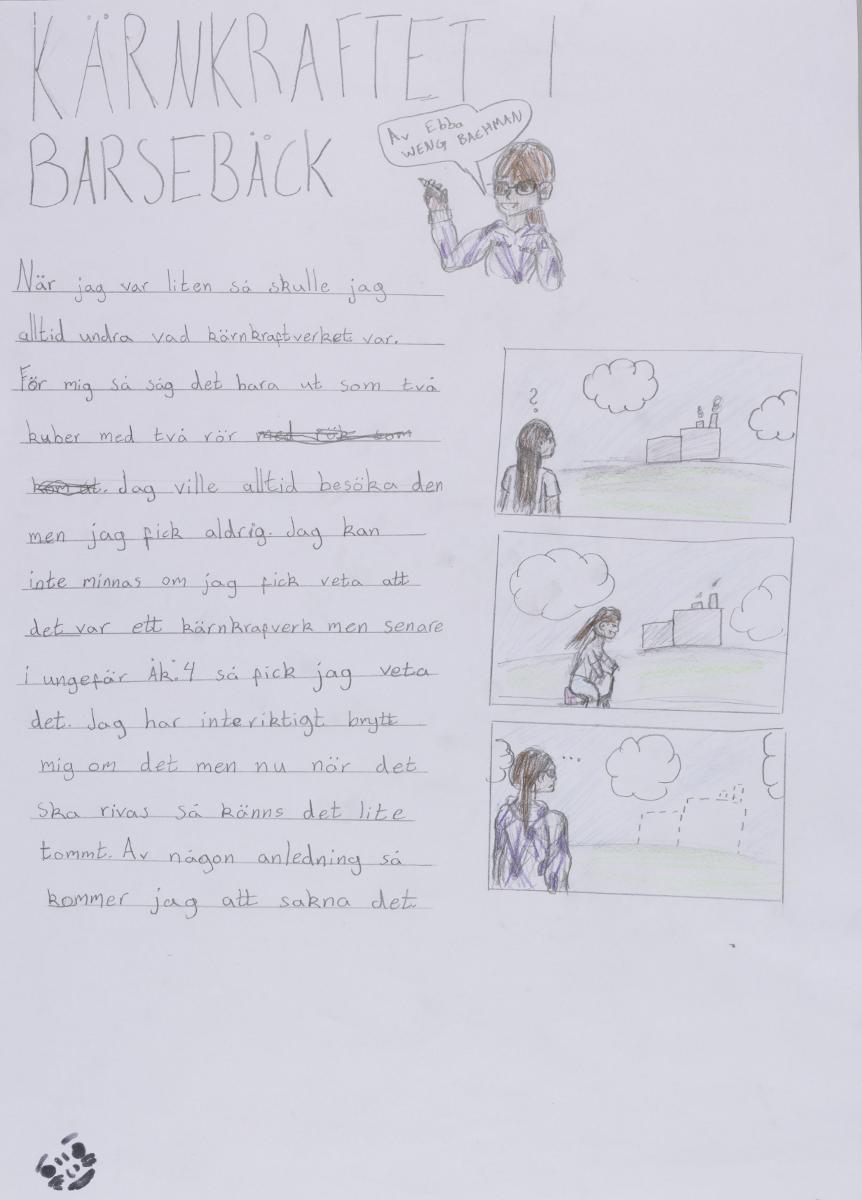 KÄRNKRAFTET I
BARSEBÄCK
Av Ebba
WENG BACHMAN
När jag var liten så skulle jag
alltid undra vad kärnkraftverket var.
För mig så såg det bara ut som två
kuber med två rör med rök som
kom ut. Jag ville alltid besöka den
men jag fick aldrig. Jag kan
inte minnas om jag fick veta att
det var ett kärnkrafverk men senare
i ungefär Åk.4 så fick jag veta
det. Jag har interiktigt brytt
mig om det men nu när det
ska rivas så känns det lite
tommt. Av någon anledning så
kommer jag att sakna det.
?
...